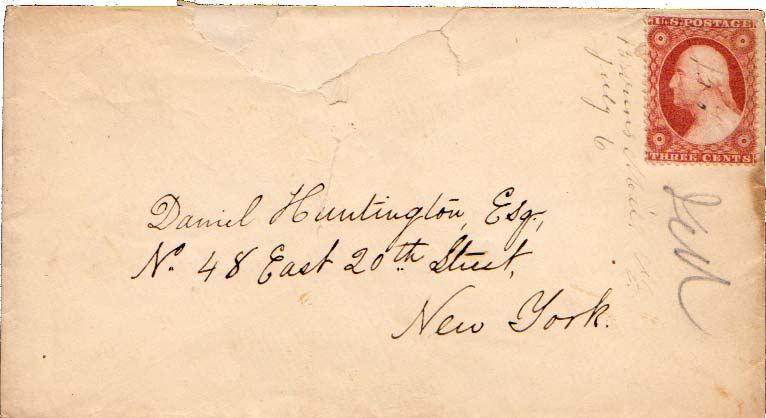 U.S. POSTAGE
THREE CENTS
July 6
Daniel Huntington, Esq.,
No. 48 East 20th Street,
New York.